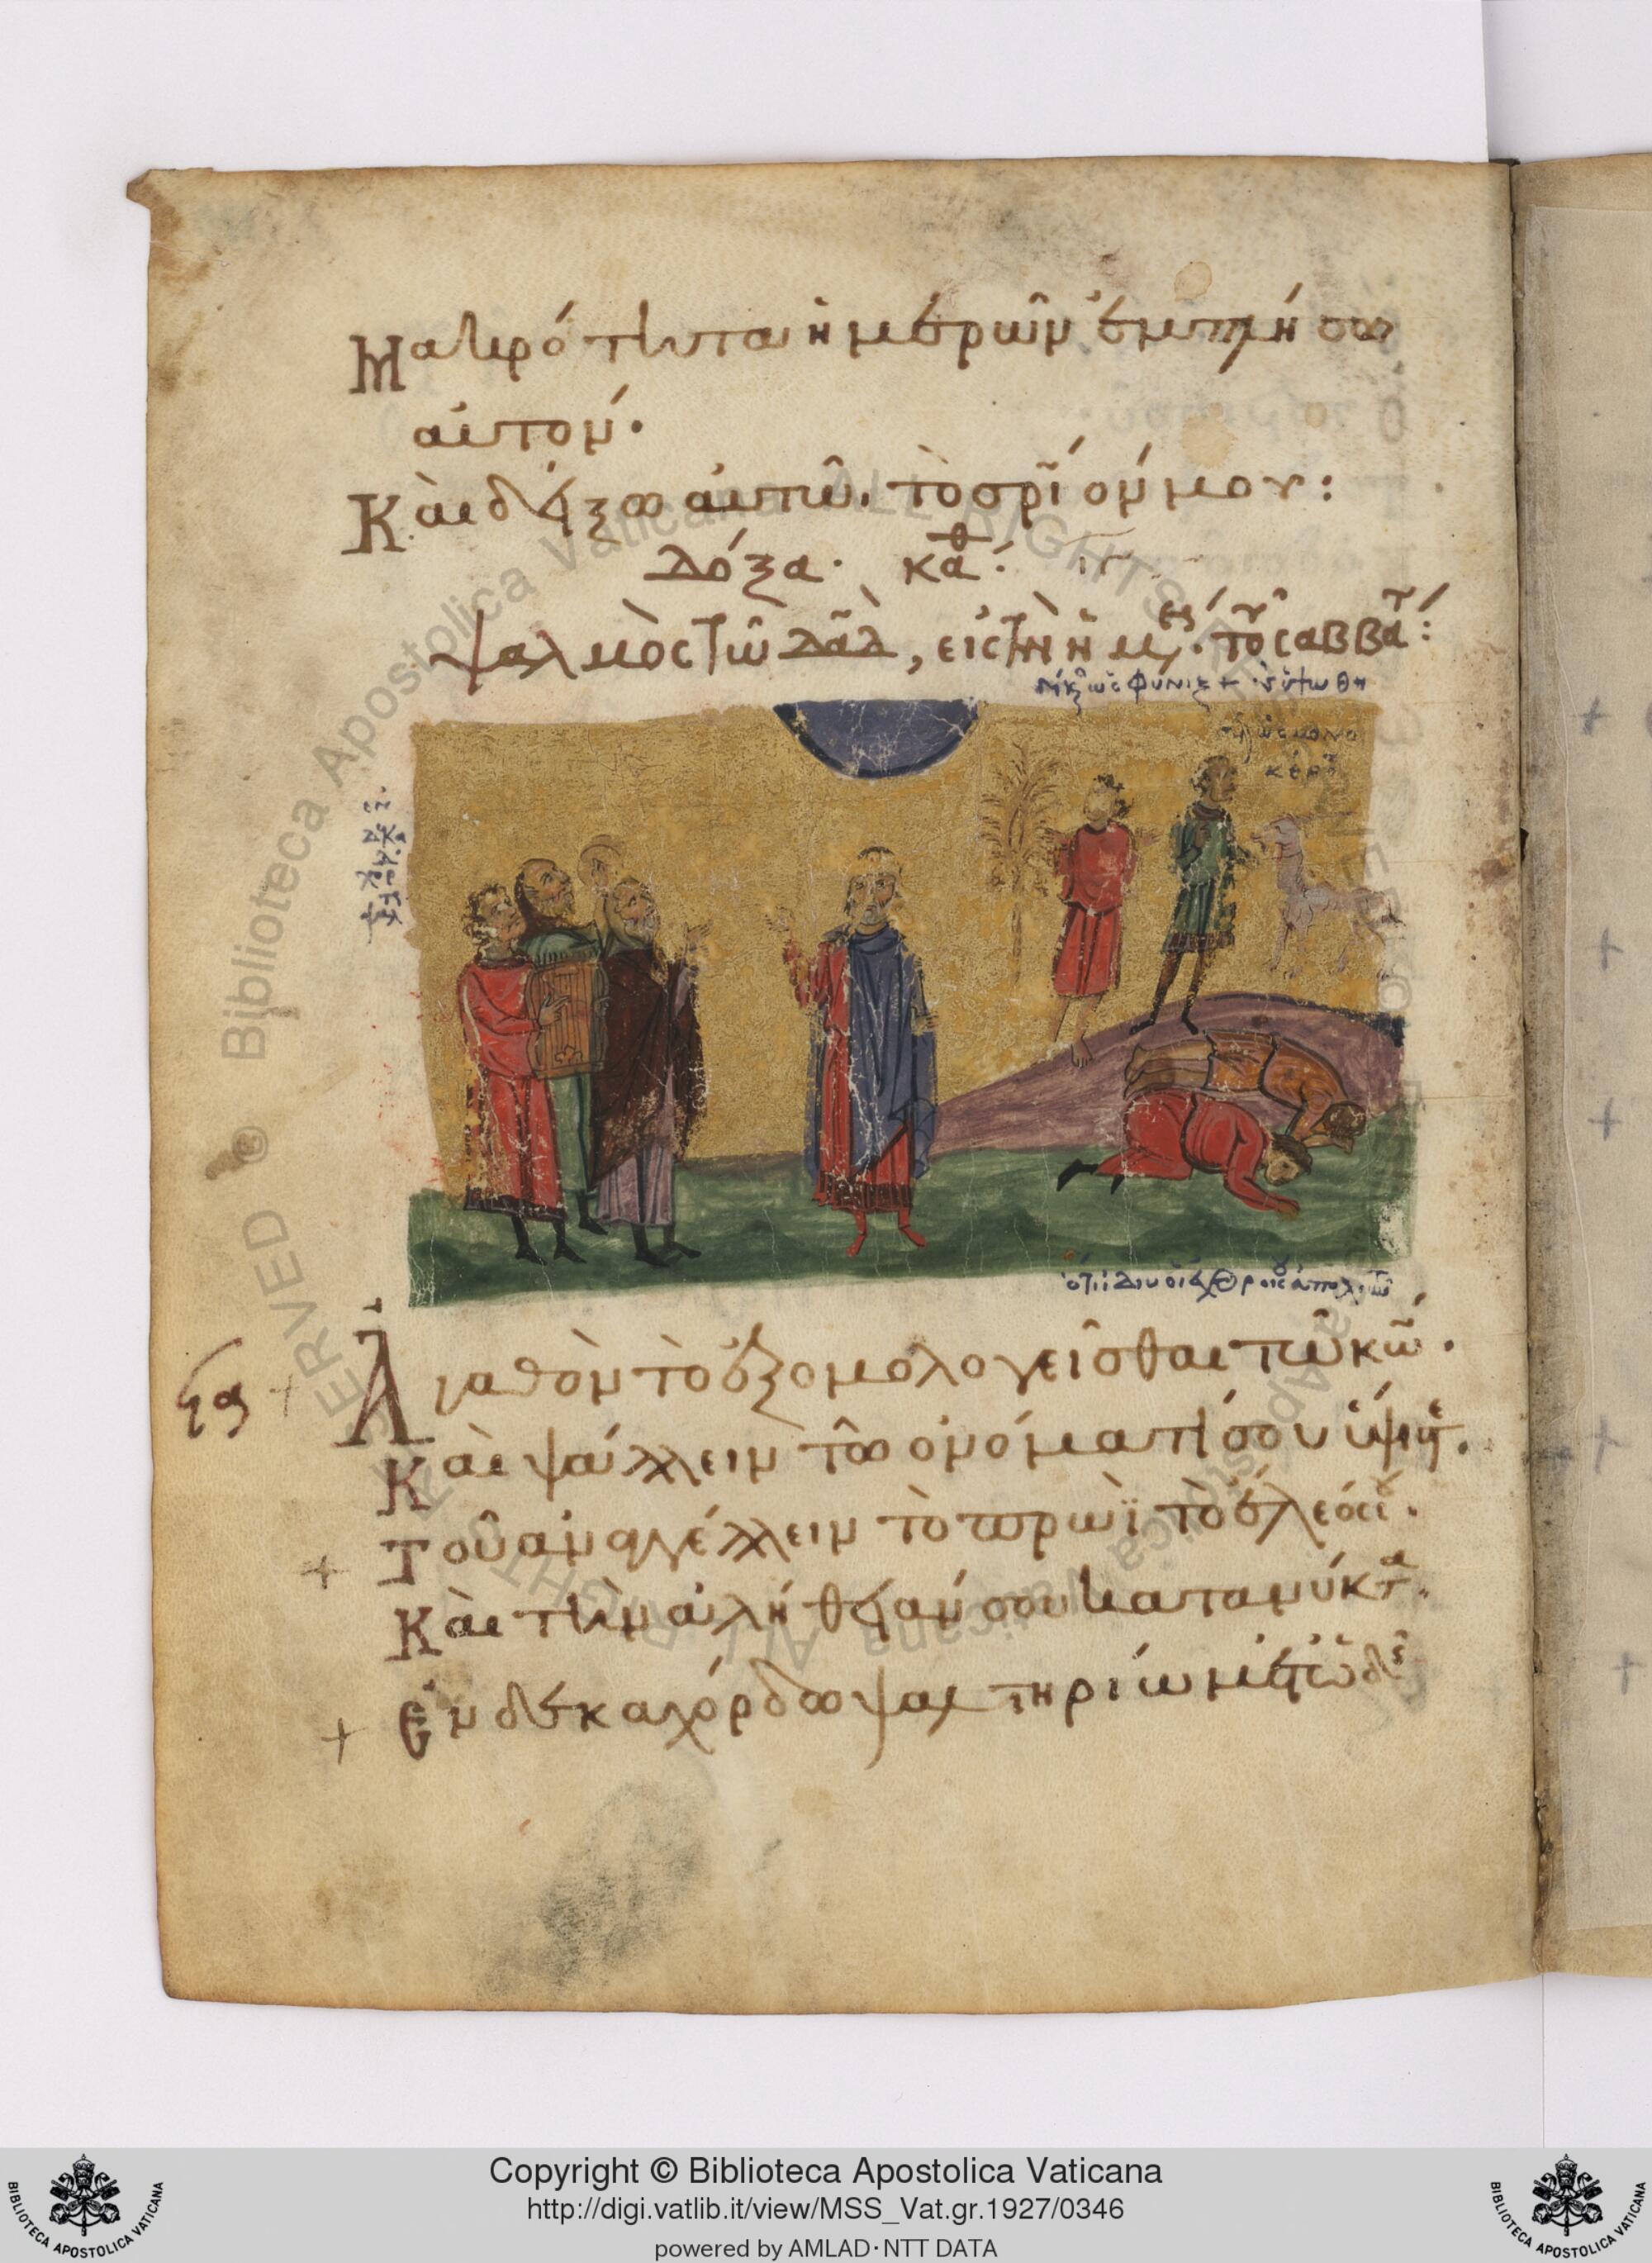 Μακρότητα ἡμερῶν ἐμπλήσω
αὐτόν·
Καὶ δείξω αὐτῶ, τὸ σρῖόν μου:
Δόξα· κάθ:
ψαλμὸς τῶ δᾶδ, εἰς τὴν ἡμέρ· τοῦ σαββάτ:
δίκαιος ὡς φύνιξ + ὑψωθη
ὡς μονο
κέρω
Ἀγαθὸν τὸ ἐξομολογεῖσθαι τῶ κῶ·
ϟα
Καὶ ψάλλειν τῶ ὀνόματί σου ὕψιστε·
Τοῦ ἀναγγέλλειν τὸ πρωῒ τὸ ἔλεός σου·
Καὶ τὴν ἀλήθειάν σου κατὰ νύκτα·
Ἐν δεκαχόρδω ψαλτηρίω μετ' ὠδῆς
ὅτι ἰδοὺ οἱ ἐχθροί σου ἀπολοῦνται
Biblioteca Apostolica Vaticana ALL RIGHTS RESERVED ©
Copyright © Biblioteca Apostolica Vaticana
http://digi.vatlib.it/view/MSS_Vat.gr.1927/0346
powered by AMLAD·NTT DATA
BIBLIOTECA APOSTOLICA VATICANA
BIBLIOTECA APOSTOLICA VATICANA